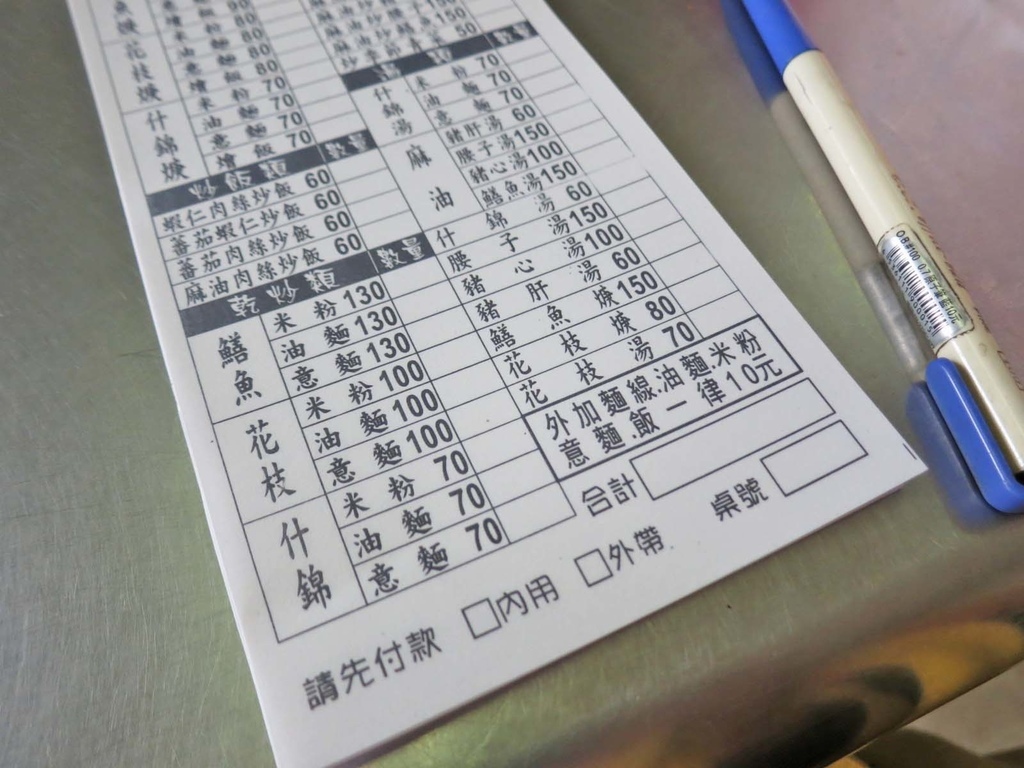 花枝焿
油麵 80
燴飯 80
米粉 70
油麵 70
意麵 70
燴飯 70
什錦焿
炒飯類 數量
蝦仁肉絲炒飯 60
蕃茄蝦仁炒飯 60
蕃茄肉絲炒飯 60
麻油肉絲炒飯 60
乾炒類 數量
鱔魚
米粉 130
油麵 130
意麵 130
花枝
米粉 100
油麵 100
意麵 100
什錦
米粉 70
油麵 70
意麵 70
湯類 數量
什錦湯
米粉 70
油麵 70
意麵 70
麻油
豬肝湯 60
腰子湯 150
豬心湯 100
鱔魚湯 150
什錦湯 60
腰子湯 150
豬心湯 100
豬肝湯 60
鱔魚焿 150
花枝焿 80
花枝湯 70
外加麵線.油麵.米粉
意麵.飯一律10元
合計
桌號
請先付款 □內用 □外帶